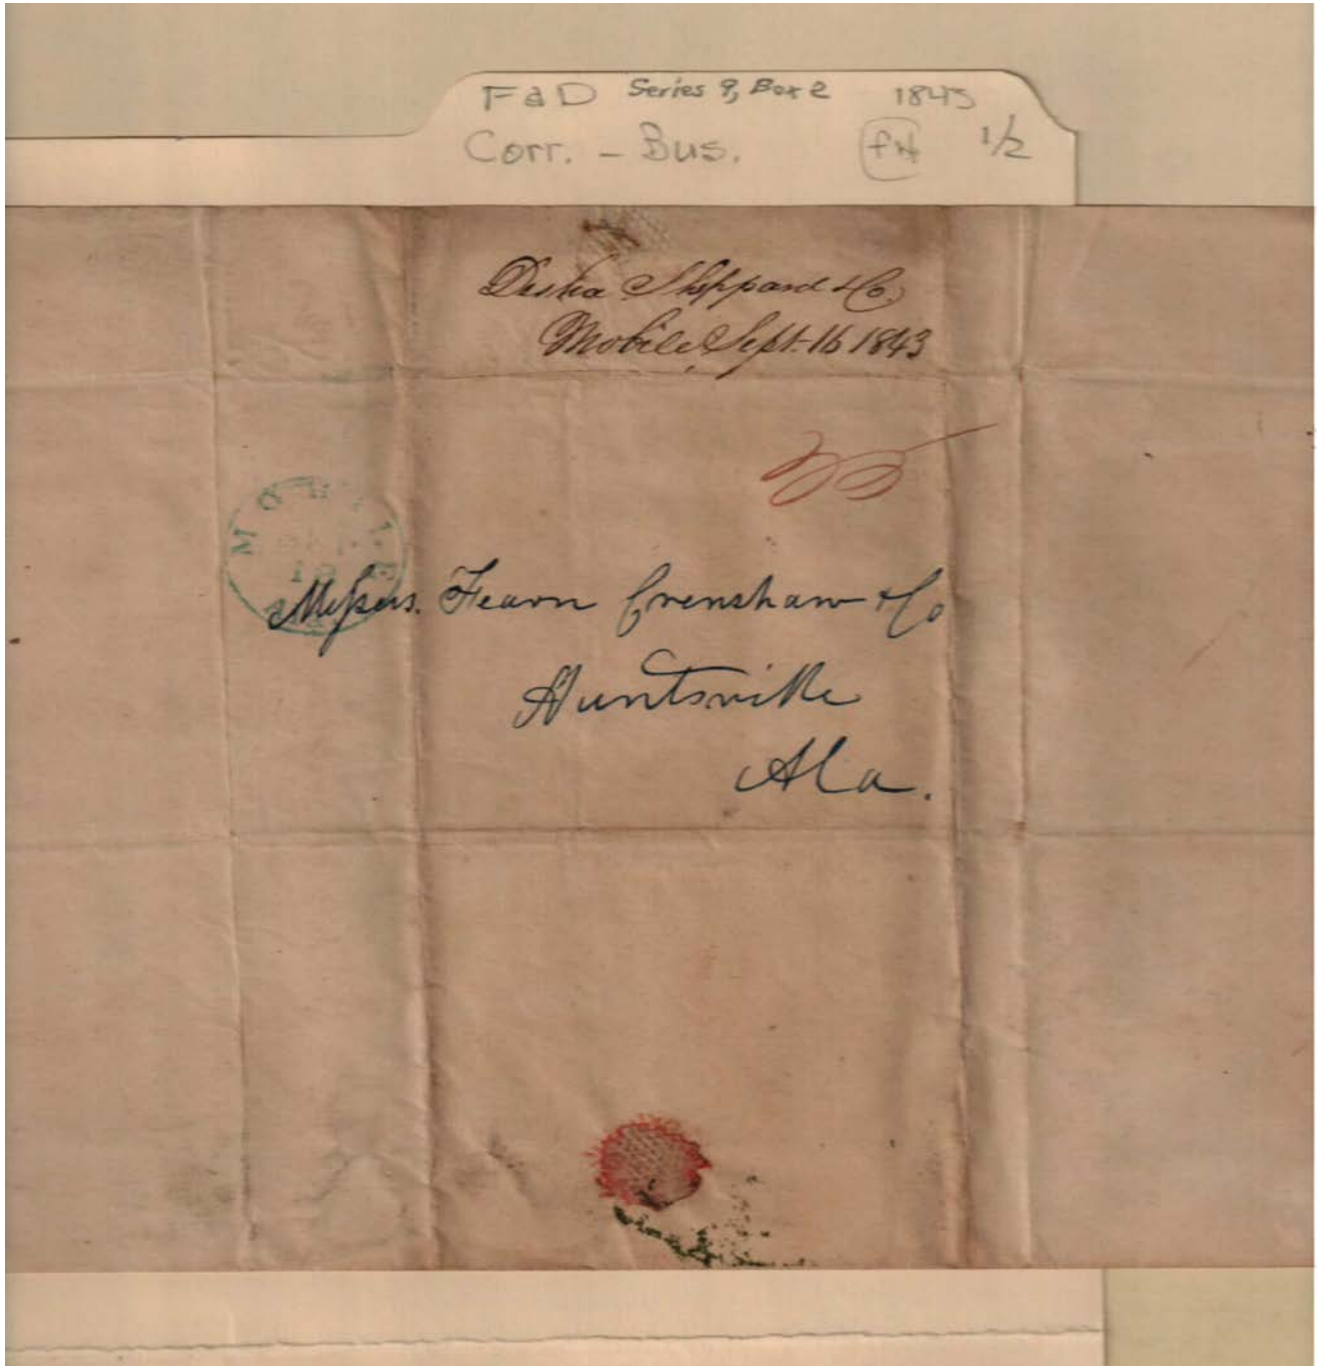 F&D Series 9, Box 2 1843
Corr. - Bus. 1/2
Desha Sheppard & Co.
Mobile, Sept. 16 1843
25
MOBILE
Messrs. Fearn Crenshaw & Co
Huntsville
Ala.